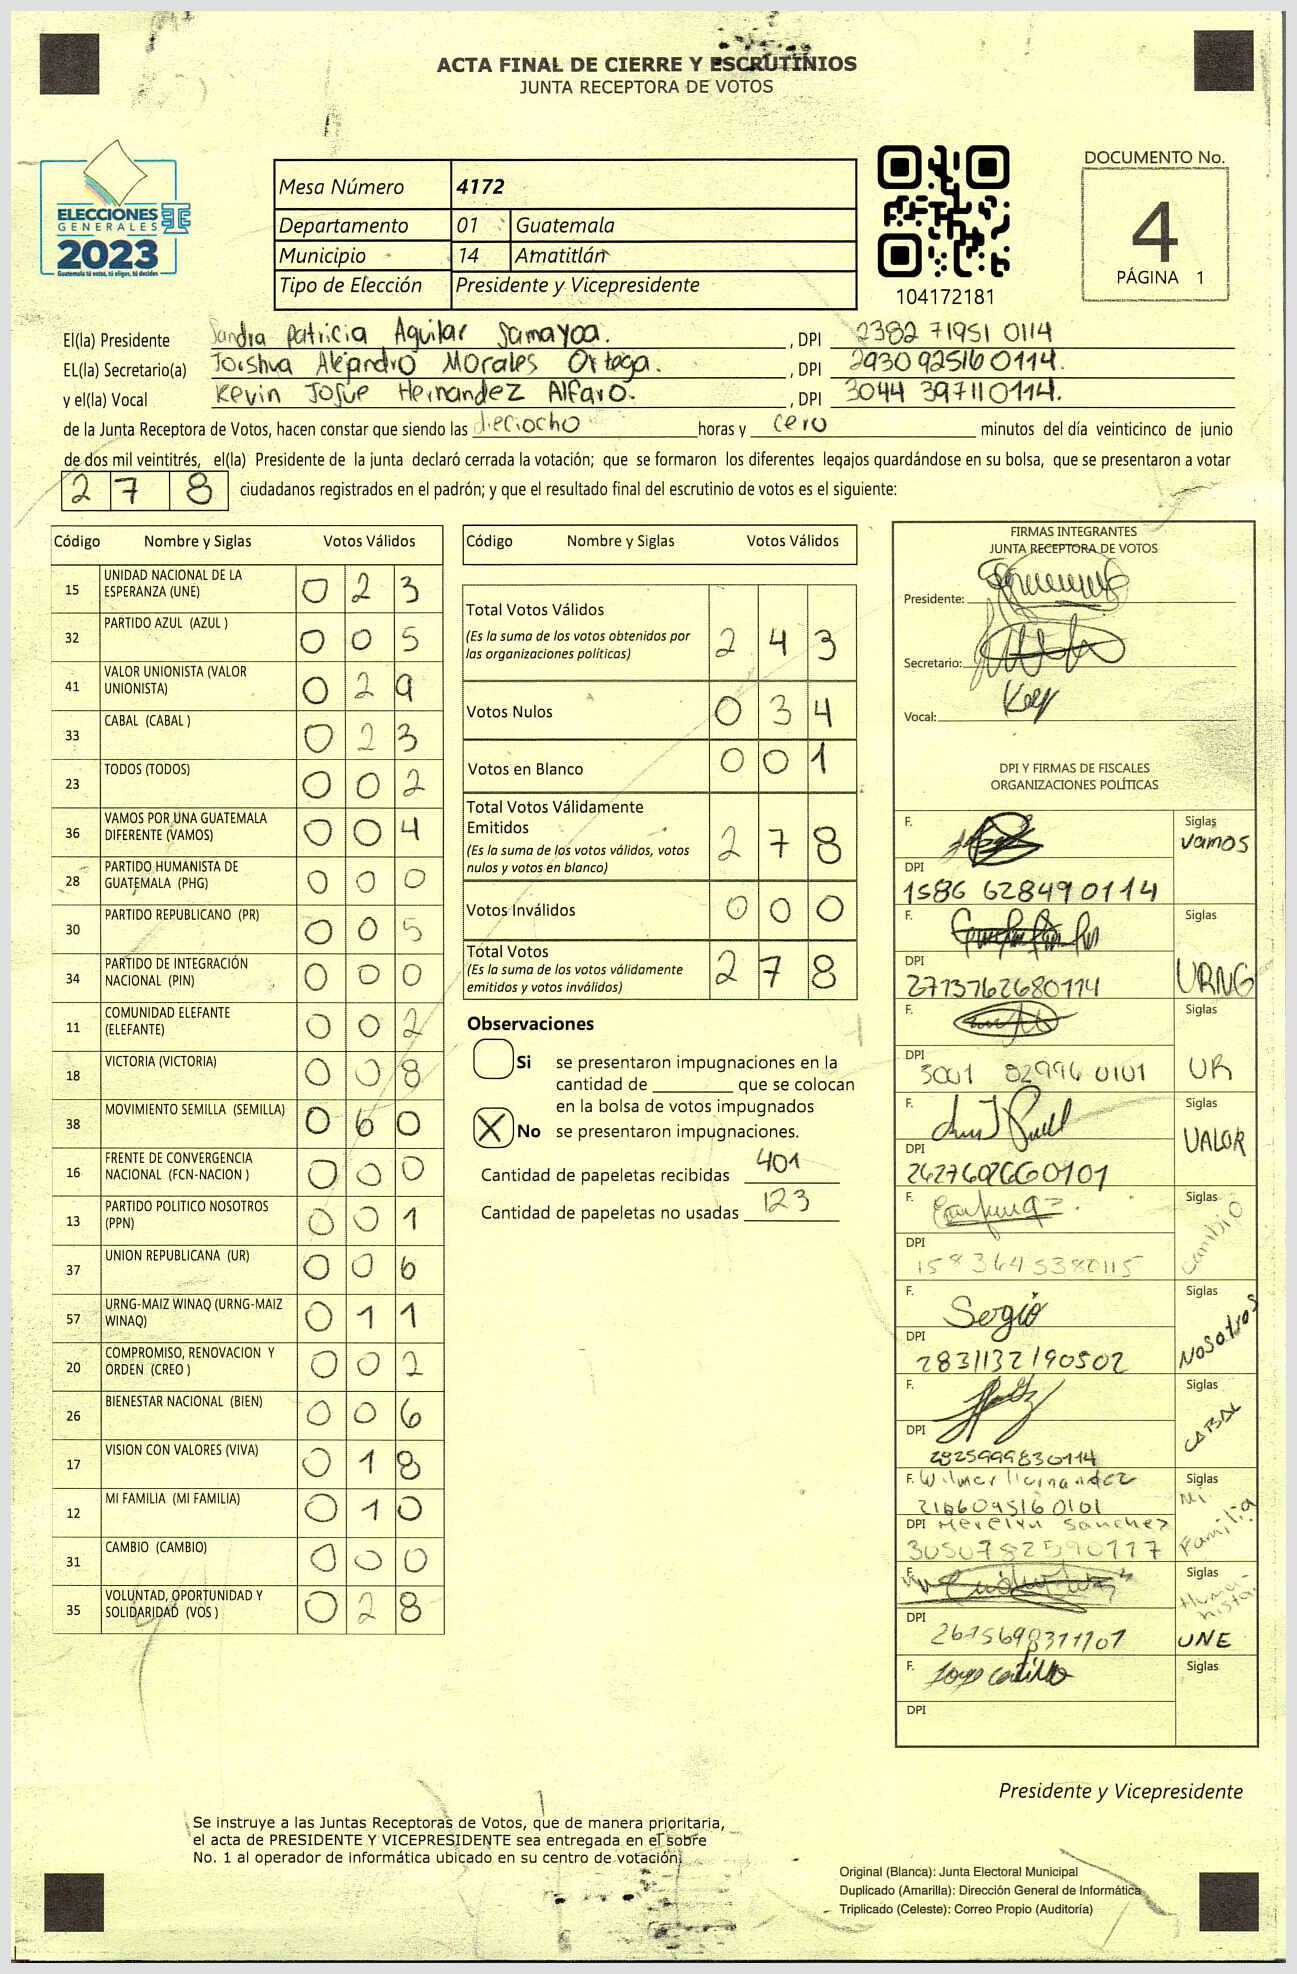 ACTA FINAL DE CIERRE Y ESCRUTINIOS
JUNTA RECEPTORA DE VOTOS
ELECCIONES
GENERALES
2023
Guatemala tú votas, tú eliges, tú decides
Mesa Número 4172
Departamento 01 Guatemala
Municipio 14 Amatitlán
Tipo de Elección Presidente y Vicepresidente
104172181
DOCUMENTO No.
4
PÁGINA 1
El(la) Presidente Sandra Patricia Aguilar Samayoa. , DPI 2382 71951 0114
EL(la) Secretario(a) Joishua Alejandro Morales Ortega. , DPI 2930 92516 0114.
y el(la) Vocal Kevin Josue Hernandez Alfaro. , DPI 3044 39711 0114.
de la Junta Receptora de Votos, hacen constar que siendo las dieciocho horas y cero minutos del día veinticinco de junio
de dos mil veintitrés, el(la) Presidente de la junta declaró cerrada la votación; que se formaron los diferentes legajos guardándose en su bolsa, que se presentaron a votar
2 7 8 ciudadanos registrados en el padrón; y que el resultado final del escrutinio de votos es el siguiente:
Código Nombre y Siglas Votos Válidos
15 UNIDAD NACIONAL DE LA ESPERANZA (UNE) 0 2 3
32 PARTIDO AZUL (AZUL ) 0 0 5
41 VALOR UNIONISTA (VALOR UNIONISTA) 0 2 9
33 CABAL (CABAL ) 0 2 3
23 TODOS (TODOS) 0 0 2
36 VAMOS POR UNA GUATEMALA DIFERENTE (VAMOS) 0 0 4
28 PARTIDO HUMANISTA DE GUATEMALA (PHG) 0 0 0
30 PARTIDO REPUBLICANO (PR) 0 0 5
34 PARTIDO DE INTEGRACIÓN NACIONAL (PIN) 0 0 0
11 COMUNIDAD ELEFANTE (ELEFANTE) 0 0 2
18 VICTORIA (VICTORIA) 0 0 8
38 MOVIMIENTO SEMILLA (SEMILLA) 0 6 0
16 FRENTE DE CONVERGENCIA NACIONAL (FCN-NACION ) 0 0 0
13 PARTIDO POLITICO NOSOTROS (PPN) 0 0 1
37 UNION REPUBLICANA (UR) 0 0 6
57 URNG-MAIZ WINAQ (URNG-MAIZ WINAQ) 0 1 1
20 COMPROMISO, RENOVACION Y ORDEN (CREO ) 0 0 2
26 BIENESTAR NACIONAL (BIEN) 0 0 6
17 VISION CON VALORES (VIVA) 0 1 8
12 MI FAMILIA (MI FAMILIA) 0 1 0
31 CAMBIO (CAMBIO) 0 0 0
35 VOLUNTAD, OPORTUNIDAD Y SOLIDARIDAD (VOS ) 0 2 8
Código Nombre y Siglas Votos Válidos
Total Votos Válidos 2 4 3
(Es la suma de los votos obtenidos por
las organizaciones políticas)
Votos Nulos 0 3 4
Votos en Blanco 0 0 1
Total Votos Válidamente
Emitidos 2 7 8
(Es la suma de los votos válidos, votos
nulos y votos en blanco)
Votos Inválidos 0 0 0
Total Votos 2 7 8
(Es la suma de los votos válidamente
emitidos y votos inválidos)
Observaciones
Si se presentaron impugnaciones en la
cantidad de ________ que se colocan
en la bolsa de votos impugnados
X No se presentaron impugnaciones.
Cantidad de papeletas recibidas 401
Cantidad de papeletas no usadas 123
FIRMAS INTEGRANTES
JUNTA RECEPTORA DE VOTOS
Presidente:
Secretario:
Vocal:
DPI Y FIRMAS DE FISCALES
ORGANIZACIONES POLÍTICAS
F. Siglas Vamos
DPI 1586 62849 0114
F. Siglas URNG
DPI 2713762680114
F. Siglas UR
DPI 3001 82994 0101
F. Siglas VALOR
DPI 2427602660101
F. Siglas Cambio
DPI 1583645380115
F. Sergio Siglas Nosotros
DPI 2831132190502
F. Siglas CABAL
DPI 2825999830114
F. Wilmer Hernandez Siglas Mi Familia
2166095160101
DPI Merelyn Sanchez
3050782590117
F. Siglas Humanista
DPI 2615698311101 UNE
F. Jorge Castillo Siglas
DPI
Presidente y Vicepresidente
Se instruye a las Juntas Receptoras de Votos, que de manera prioritaria,
el acta de PRESIDENTE Y VICEPRESIDENTE sea entregada en el sobre
No. 1 al operador de informática ubicado en su centro de votación.
Original (Blanca): Junta Electoral Municipal
Duplicado (Amarilla): Dirección General de Informática
Triplicado (Celeste): Correo Propio (Auditoría)